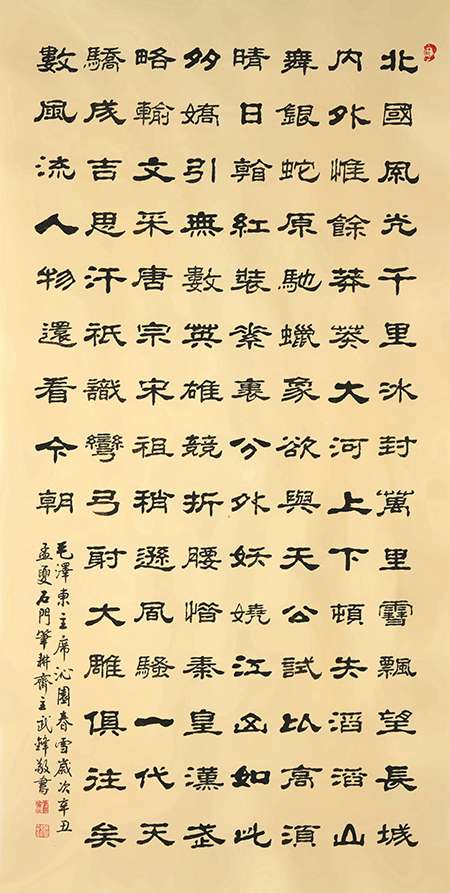 北國風光千里冰封萬里雪飄望長城
内外惟餘莽莽大河上下頓失滔滔山
舞銀蛇原馳蠟象欲與天公試比高須
晴日看紅裝素裹分外妖嬈江山如此
多嬌引無數英雄競折腰惜秦皇漢武
略輸文采唐宗宋祖稍遜風騷一代天
驕成吉思汗祇識彎弓射大雕俱往矣
數風流人物還看今朝
毛澤東主席沁園春雪歲次辛丑
孟夏石門筆耕齋主武鋒敬書